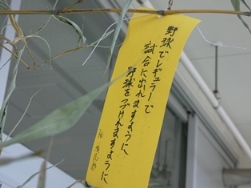 野球でレギュラーで
試合に出れますように
野球を
ますように